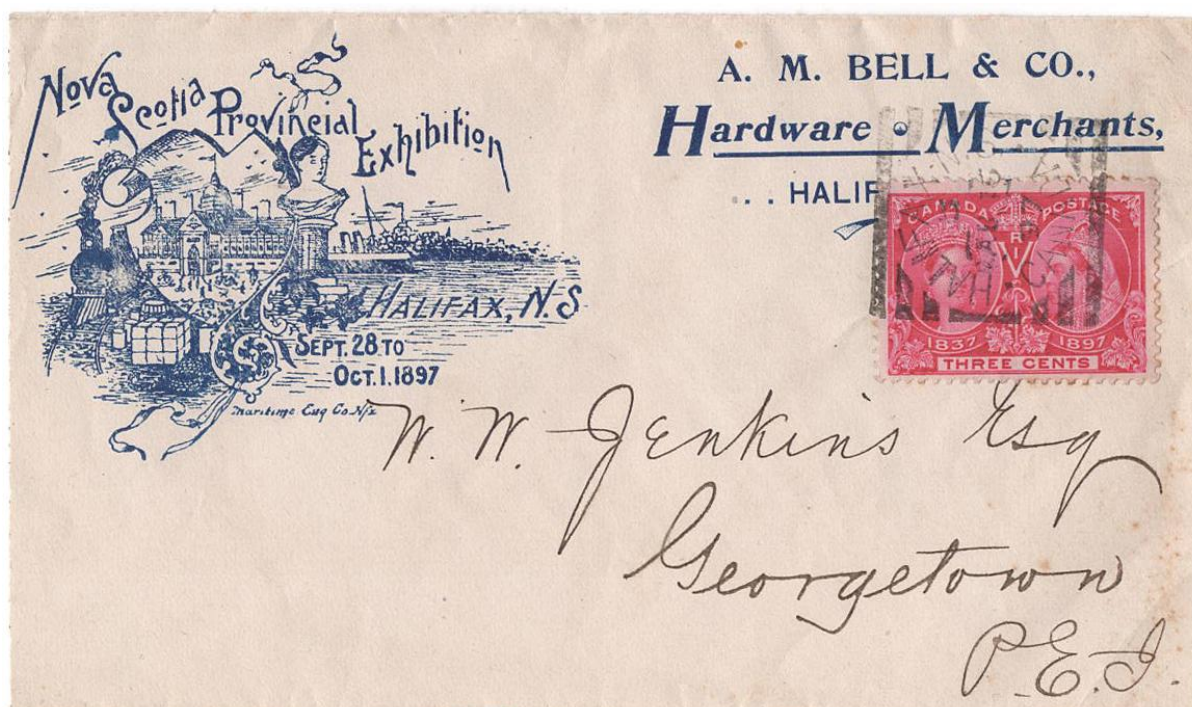 Nova Scotia Provincial Exhibition
HALIFAX, N.S.
SEPT. 28 TO
OCT. 1. 1897
Maritime Eng Co. Hfx
A. M. BELL & CO.,
Hardware • Merchants,
. . HALIF
CANADA POSTAGE
V R I
1837 1897
THREE CENTS
W. W. Jenkins Esq
Georgetown
P.E.I.